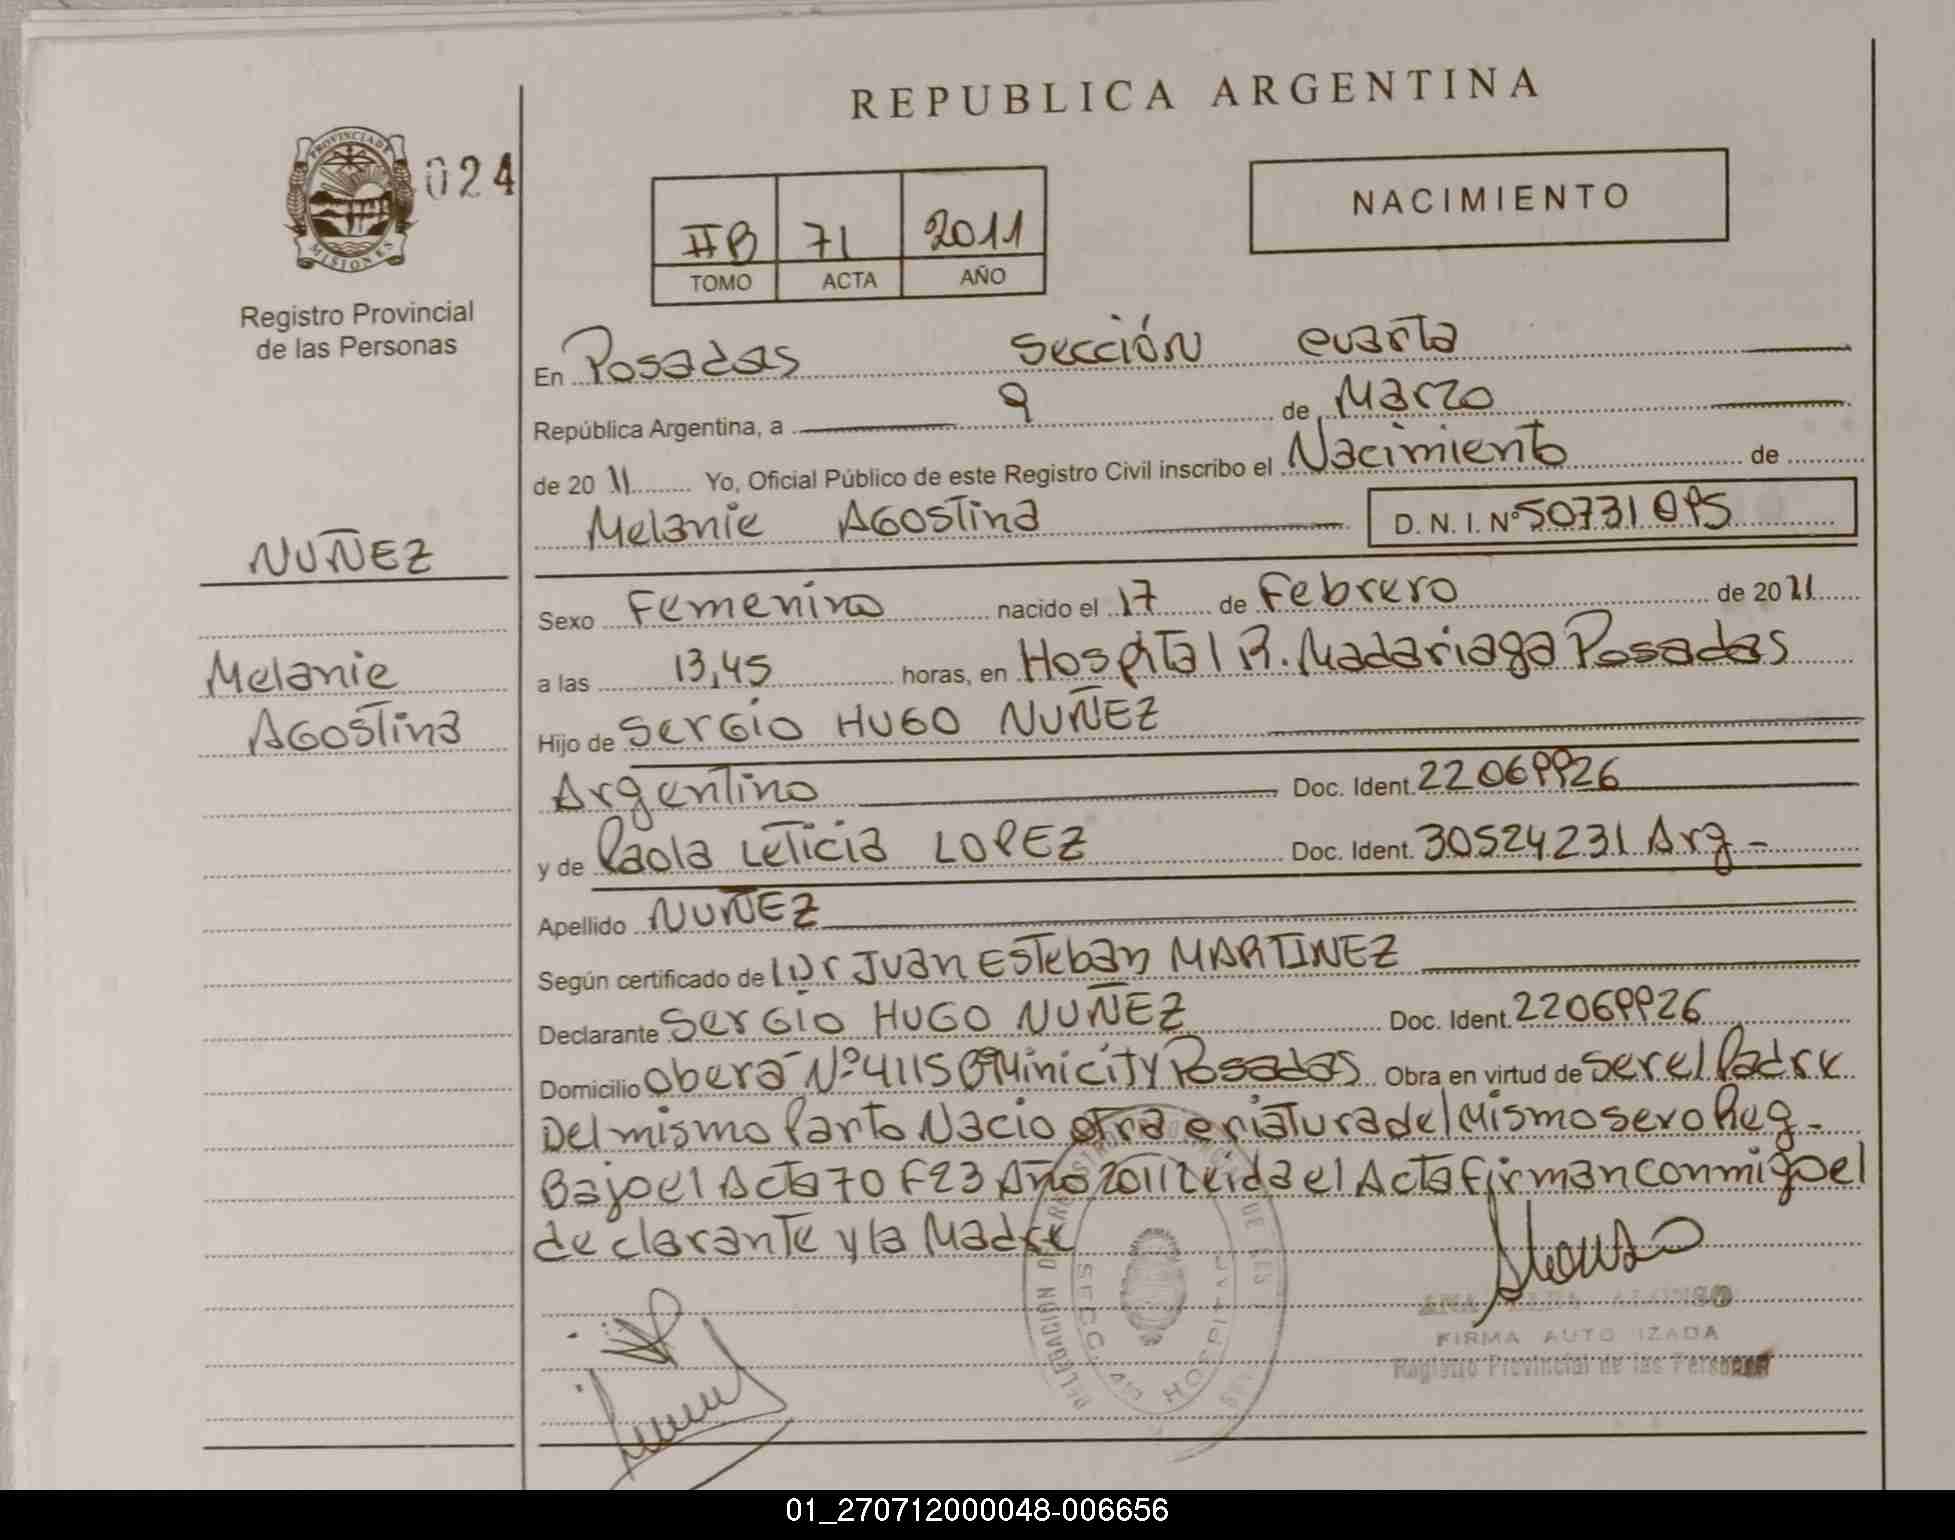 REPUBLICA ARGENTINA
PROVINCIA DE MISIONES
024
Registro Provincial
de las Personas
IIB 71 2011
TOMO ACTA AÑO
NACIMIENTO
En Posadas Sección cuarta
República Argentina, a 9 de Marzo
de 2011 Yo, Oficial Público de este Registro Civil inscribo el Nacimiento de
Melanie Agostina D. N. I. Nº 50731095
NUÑEZ
Melanie
Agostina
Sexo Femenino nacido el 17 de Febrero de 2011
a las 13,45 horas, en Hospital R. Madariaga Posadas
Hijo de Sergio HUGO NUÑEZ
Argentino Doc. Ident. 22069926
y de Paola Leticia LOPEZ Doc. Ident. 30524231 Arg -
Apellido NUÑEZ
Según certificado de Dr Juan Esteban MARTINEZ
Declarante Sergio HUGO NUÑEZ Doc. Ident. 22069926
Domicilio Obera Nº 4115 Bº Minicity Posadas Obra en virtud de ser el Padre
Del mismo Parto Nacio otra criatura del Mismo sexo Reg -
Bajo el Acta 70 F23 Año 2011 Leida el Acta Firman conmigo el
declarante y la Madre
SECC. 4ta HOSPITAL
FIRMA AUTORIZADA
Registro Provincial de las Personas
01_270712000048-006656